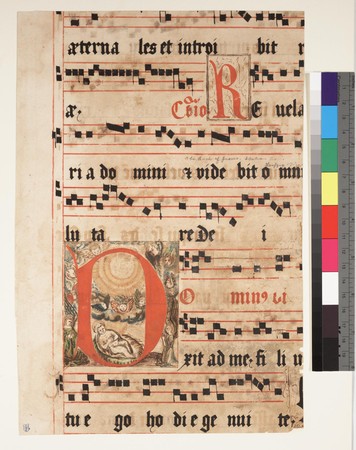 æterna les et introi bit r
æ. Cōio R Evela
ri a do mini & vide bit o mni
lu ta re De i
D Ominus di
xit ad me. fi li u
tu e go ho di e ge nui te.